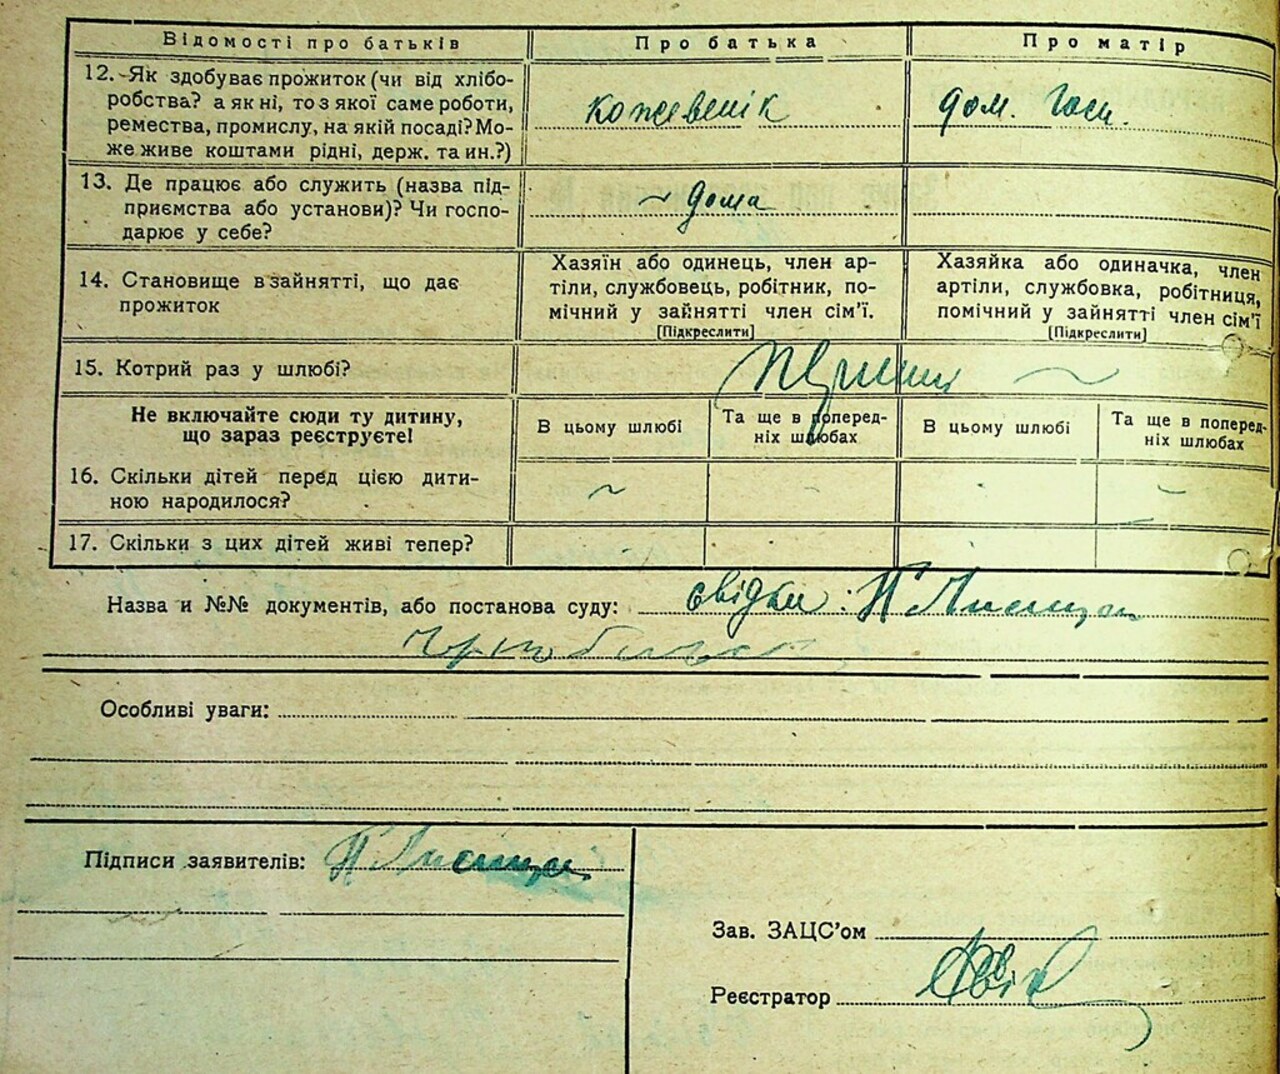 Відомості про батьків Про батька Про матір
12. Як здобуває прожиток (чи від хлібо-
робства? а як ні, то з якої саме роботи,
ремества, промислу, на якій посаді? Мо-
же живе коштами рідні, держ. та ин.?)
кожевенік дом. госп.
13. Де працює або служить (назва під-
приємства або установи)? Чи госпо-
дарює у себе?
~ дома
14. Становище в зайнятті, що дає
прожиток
Хазяїн або одинець, член ар-
тіли, службовець, робітник, по-
мічний у зайнятті член сім'ї.
[Підкреслити]
Хазяйка або одиначка, член
артіли, службовка, робітниця,
помічний у зайнятті член сім'ї
[Підкреслити]
15. Котрий раз у шлюбі?
Не включайте сюди ту дитину,
що зараз реєструєте!
В цьому шлюбі
Та ще в поперед-
ніх шлюбах
В цьому шлюбі
Та ще в поперед-
ніх шлюбах
16. Скільки дітей перед цією дити-
ною народилося?
17. Скільки з цих дітей живі тепер?
Назва и №№ документів, або постанова суду: свідки:
Особливі уваги:
Підписи заявителів:
Зав. ЗАЦС'ом
Реєстратор